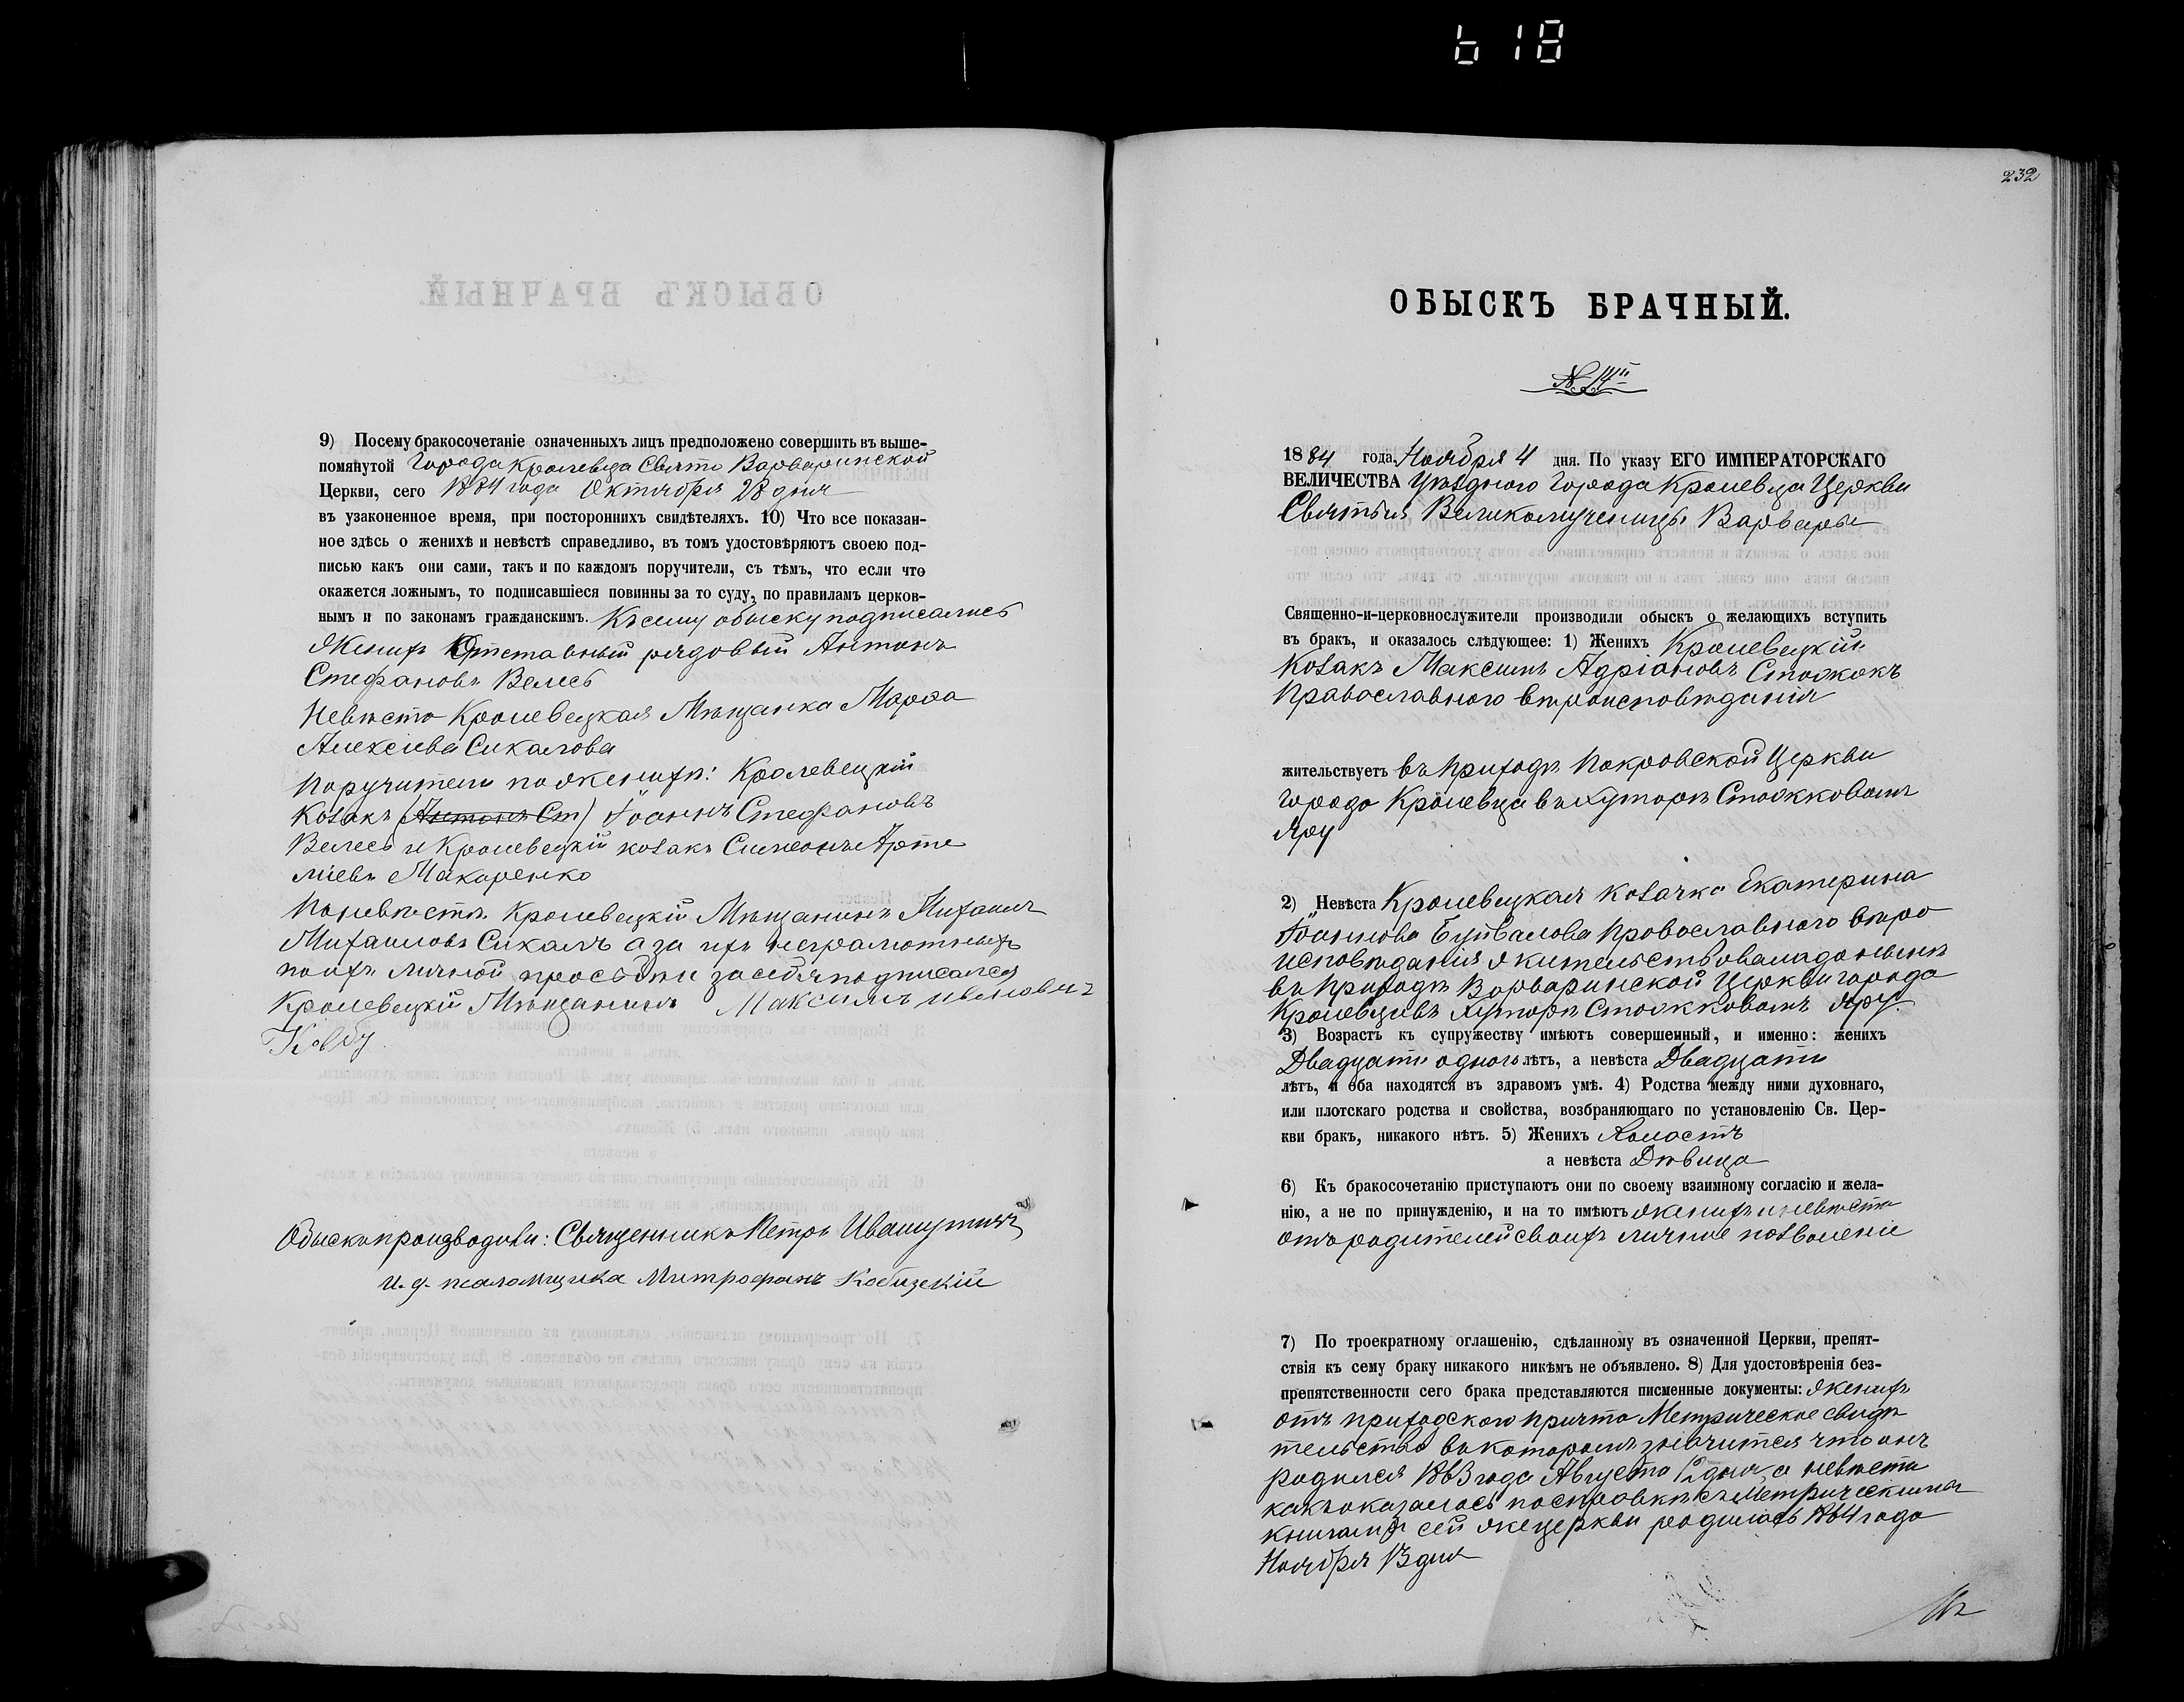 618
9) Посему бракосочетаніе означенныхъ лицъ предположено совершить въ выше-
помянутой Города Кролевца Свято Варваринской
Церкви, сего 1884 года Октября 28 дня
въ узаконенное время, при постороннихъ свидѣтеляхъ. 10) Что все показан-
ное здѣсь о женихѣ и невѣстѣ справедливо, въ томъ удостовѣряютъ своею под-
писью какъ они сами, такъ и по каждомъ поручители, съ тѣмъ, что если что
окажется ложнымъ, то подписавшіеся повинны за то суду, по правиламъ церков-
нымъ и по законамъ гражданскимъ. Къ сему обыску подписались
Женихъ Отставный рядовый Антонъ
Стефановъ Велесъ
Невѣста Кролевецкая Мѣщанка Марфа
Алексіева Сикалова
Поручители по женихѣ: Кролевецкій
Козакъ (Антонъ Ст) Іоаннъ Стефановъ
Велесъ и Кролевецкій козакъ Симеонъ Арте
міевъ Макаренко
По невѣстѣ Кролевецкій Мѣщанинъ Михаилъ
Михаиловъ Сикалъ а за ихъ неграмотныхъ
по ихъ личной просьбѣ и за себя подписался
Кролевецкій Мѣщанинъ Максимъ Ивановичъ
Обыскъ производили: Священникъ Петръ Ивашутичъ
и. д. псаломщика Митрофанъ Кобизскій
232
ОБЫСКЪ БРАЧНЫЙ.
№ 14й
1884 года, Ноября 4 дня. По указу ЕГО ИМПЕРАТОРСКАГО
ВЕЛИЧЕСТВА Уѣздного Города Кролевца Церкви
Святыя Великомученицы Варвары
Священно-и-церковнослужители производили обыскъ о желающихъ вступить
въ бракъ, и оказалось слѣдующее: 1) Женихъ Кролевецкій
Козакъ Максимъ Адріановъ Стожокъ
Православного вѣроисповѣданія
жительствуетъ въ приходѣ Покровской Церкви
города Кролевца въ хуторѣ Стожковомъ
Яру
2) Невѣста Кролевецкая козачка Екатерина
Іоаннова Буйвалова Православного вѣро
исповѣданія жительствовала до нынѣ
въ приходѣ Варваринской Церкви города
Кролевца въ хуторѣ Стожковомъ Яру.
3) Возрастъ къ супружеству имѣютъ совершенный, и именно: женихъ
Двадцати одного лѣтъ, а невѣста Двадцати
лѣтъ, и оба находятся въ здравомъ умѣ. 4) Родства между ними духовнаго,
или плотскаго родства и свойства, возбраняющаго по установленію Св. Цер-
кви бракъ, никакого нѣтъ. 5) Женихъ Холостъ
а невѣста Дѣвица
6) Къ бракосочетанію приступаютъ они по своему взаимному согласію и жела-
нію, а не по принужденію, и на то имѣютъ женихъ и невѣста
отъ родителей своихъ личное позволеніе
7) По троекратному оглашенію, сдѣланному въ означенной Церкви, препят-
ствія къ сему браку никакого никѣмъ не объявлено. 8) Для удостовѣренія без-
препятственности сего брака представляются писменные документы: женихъ
отъ приходского причта Метрическое свидѣ
тельство въ которомъ значится что онъ
родился 1863 года Августа 12 дня, а невѣста
какъ оказалось по справкѣ съ Метрическими
книгами сей же церкви родилась 1864 года
Ноября 13 дня